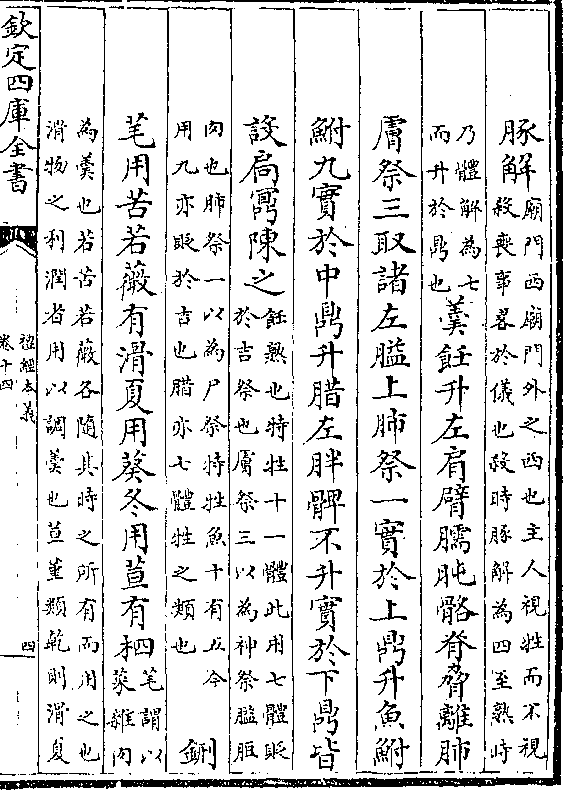 豚解廟門西廟門外之西也主人視牲而不視
殺喪事畧於儀也殺時豚解為四至熟時
乃體解為七
而升於鼎也羮飪升左肩臂臑肫骼脊脅離肺
膚祭三取諸左膉上肺祭一實於上鼎升魚鱄
鮒九實於中鼎升腊左胖髀不升實於下鼎皆
設扃鼏陳之飪熟也特牲十一體此用七體貶
於吉祭也膚祭三以為神祭膉脰
肉也肺祭一以為尸祭特牲魚十有五今
用九亦貶於吉也腊亦七體牲之類也
鉶
芼用苦若薇有滑夏用葵冬用荁有柶芼謂以
菜雜肉
為羮也若苦若薇各隨其時之所有而用之也
滑物之利潤者用以調羮也荁菫類乾則滑夏
欽定四庫全書
禮經本義
卷十四
四